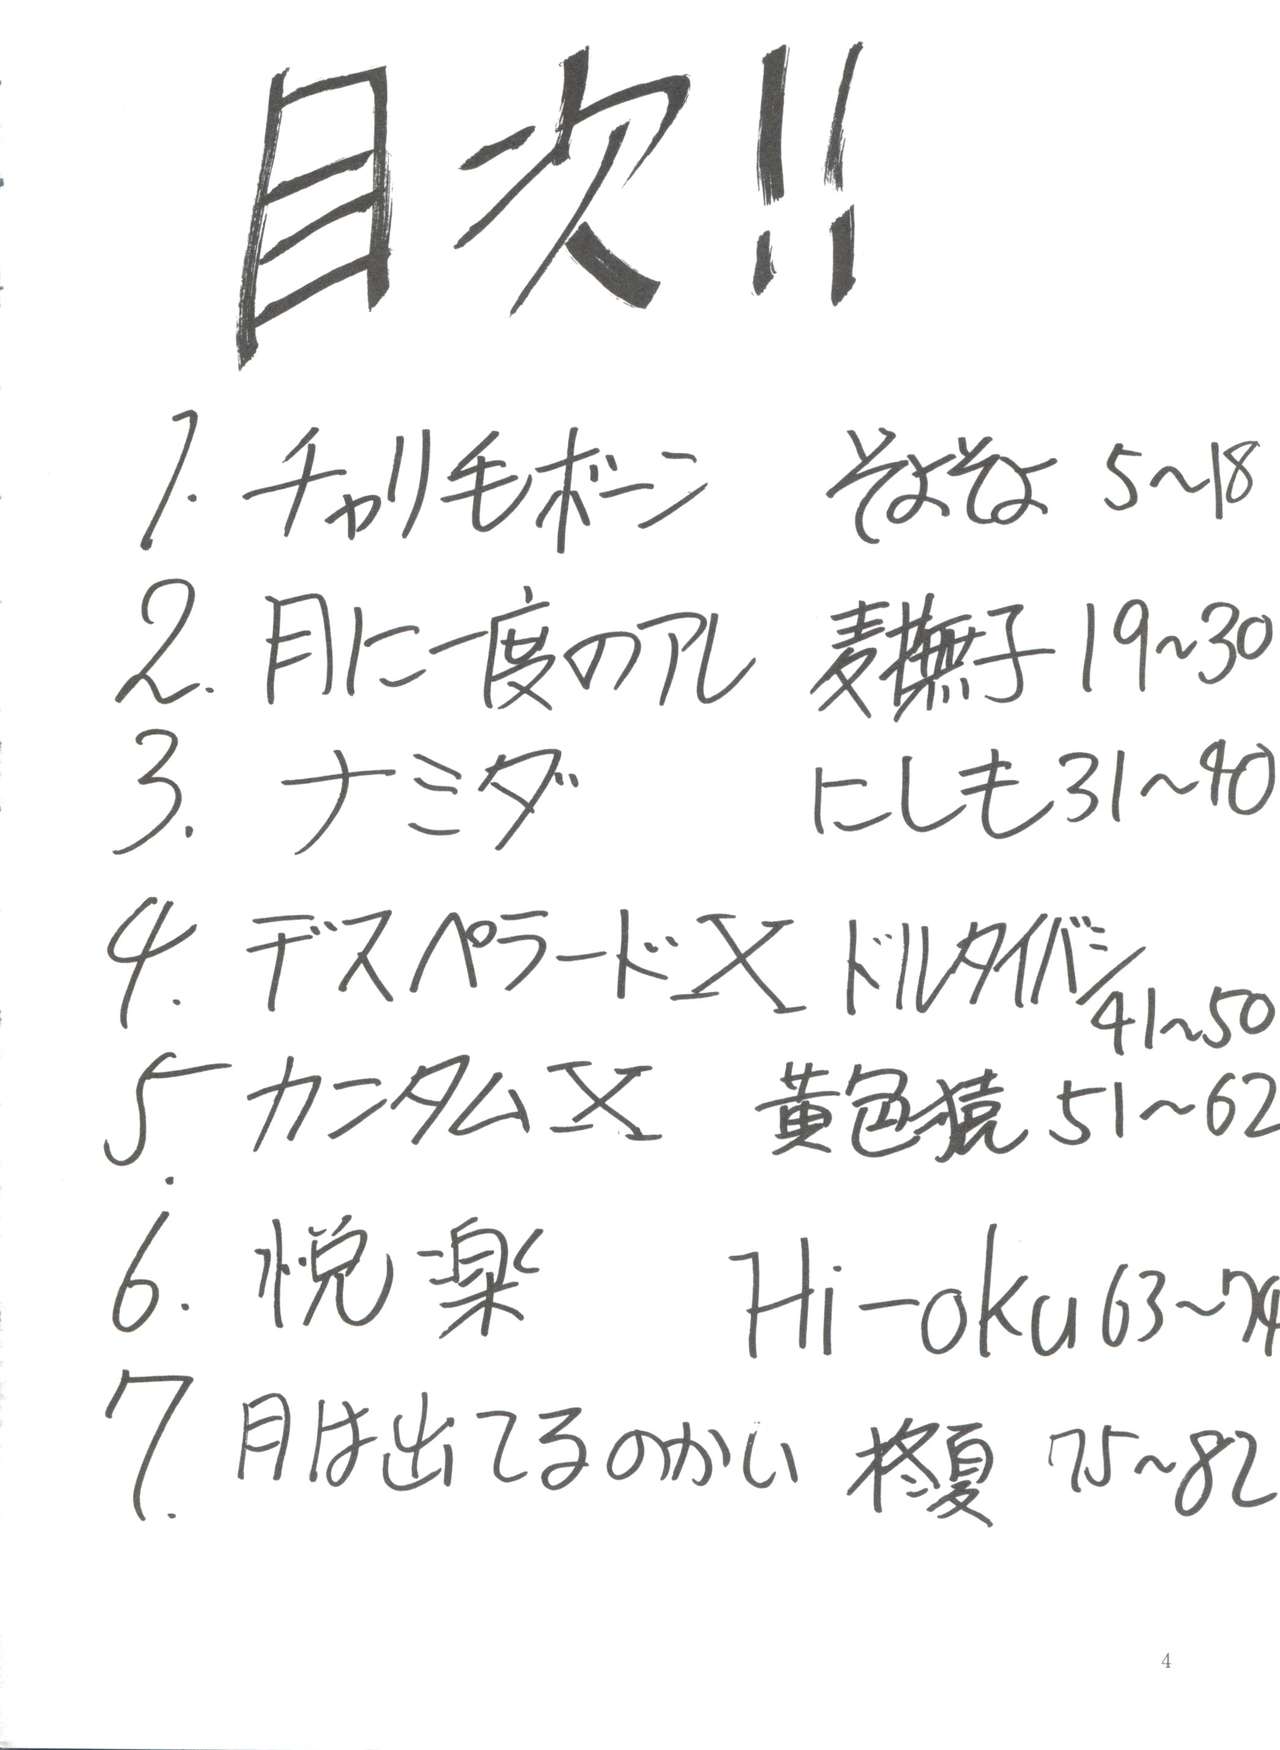 目次!!
1. チャリ毛ボーン そよそよ 5～18
2. 月に一度のアレ 麦撫子 19～30
3. ナミダ にしも 31～40
4. デスペラードX ドルタイバシ 41～50
5. カンタムX 黄色猿 51～62
6. 悦楽 Hi-oku 63～74
7. 月は出てるのかい 柊夏 75～82
4